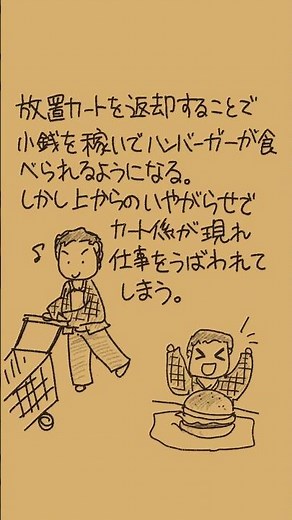 放置カートを返却することで
小銭を稼いでハンバーガーが食
べられるようになる。
しかし上からのいやがらせで
カート係が現れ
仕事をうばわれて
しまう。